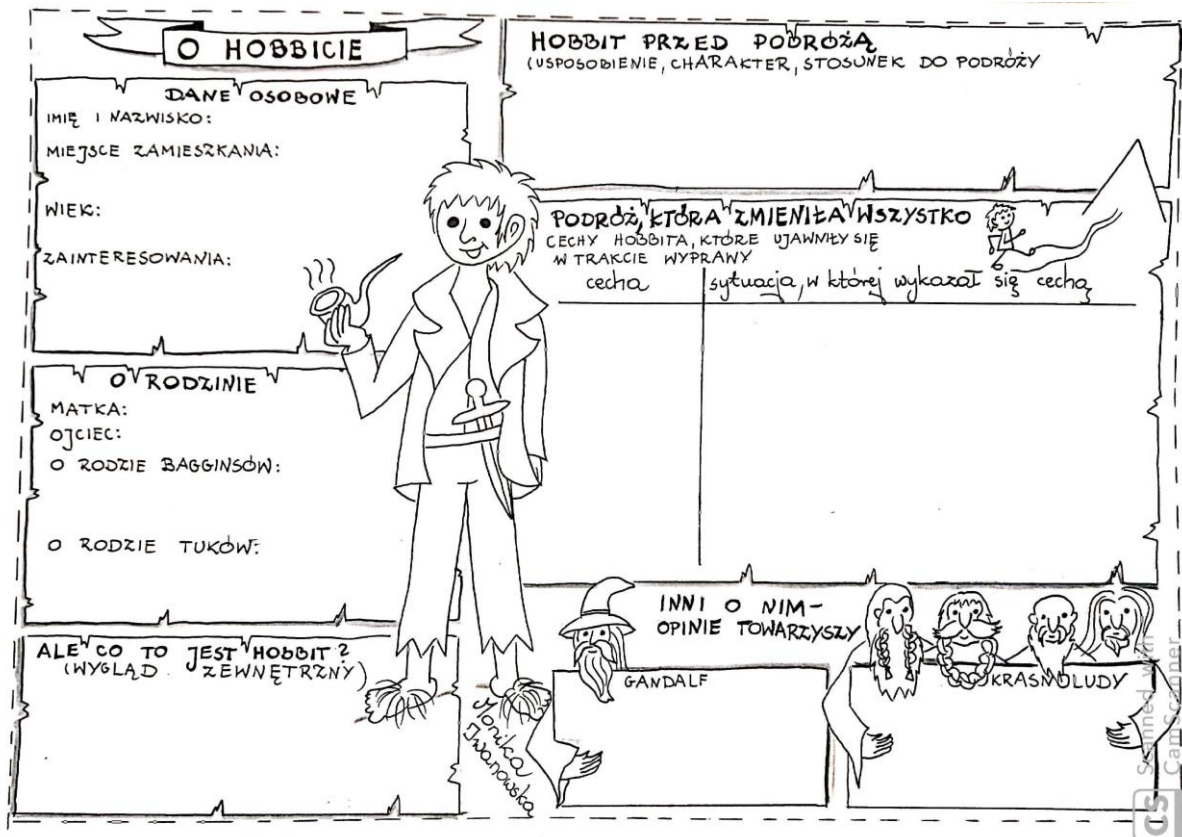 O HOBBICIE
DANE OSOBOWE
IMIĘ I NAZWISKO:
MIEJSCE ZAMIESZKANIA:
WIEK:
ZAINTERESOWANIA:
O RODZINIE
MATKA:
OJCIEC:
O RODZIE BAGGINSÓW:
O RODZIE TUKÓW:
ALE CO TO JEST HOBBIT?
(WYGLĄD ZEWNĘTRZNY)
HOBBIT PRZED PODRÓŻĄ
(USPOSOBIENIE, CHARAKTER, STOSUNEK DO PODRÓŻY
PODRÓŻ, KTÓRA ZMIENIŁA WSZYSTKO
CECHY HOBBITA, KTÓRE UJAWNIŁY SIĘ
W TRAKCIE WYPRAWY
cecha
sytuacja, w której wykazał się cechą
INNI O NIM-
OPINIE TOWARZYSZY
GANDALF
KRASNOLUDY
Monika
Iwanowska
CS
Scanned with
CamScanner